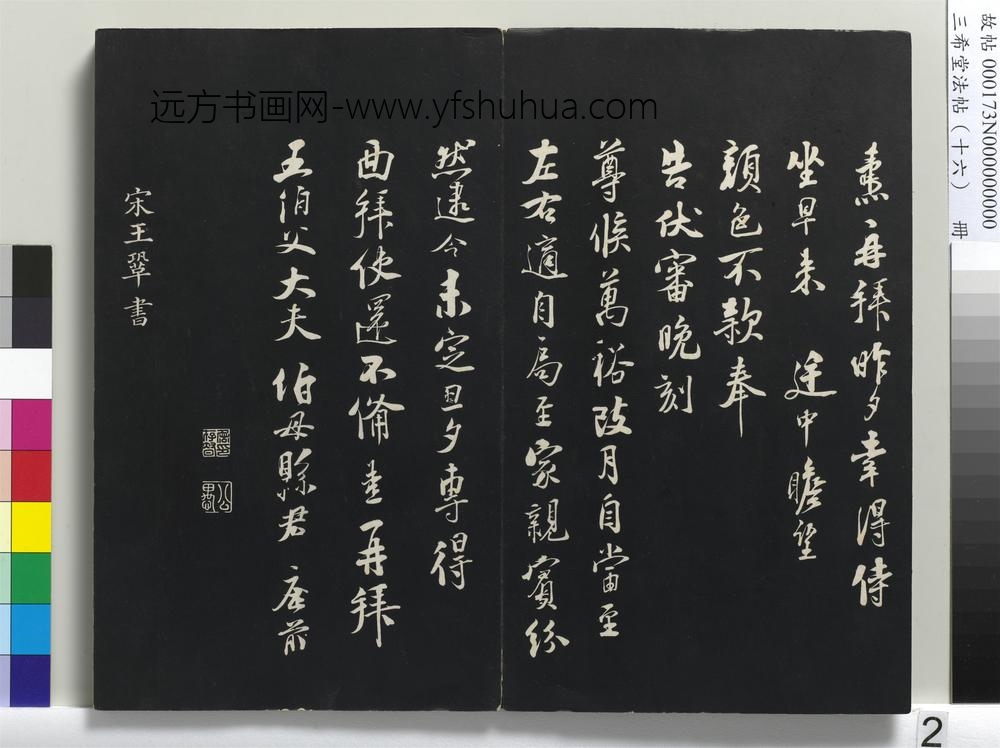 故帖 000173N000000000
三希堂法帖（十六） 冊
远方书画网-www.yfshuhua.com
再拜昨夕幸得侍
坐早来 途中瞻望
顔色不款奉
告伏審晚刻
尊候萬裕改月自當至
左右適自局至家親賓紛
然逮今未定旦夕專得
面拜使還不備 再拜
五伯父大夫 伯母縣君 座前
宋王鞏書
2